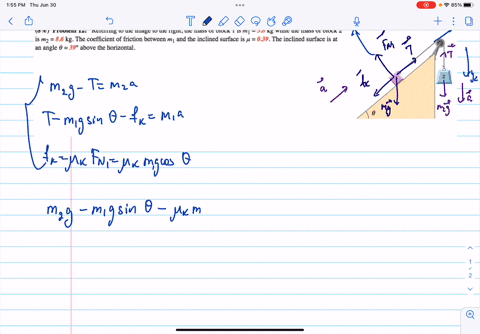 1:55 PM Thu Jun 30
85%
(8%) Problem 12: Referring to the image to the right, the mass of block 1 is m₁ = 5.8 kg while the mass of block 2
is m₂ = 8.8 kg. The coefficient of friction between m₁ and the inclined surface is μ = 0.39. The inclined surface is at
an angle θ = 39° above the horizontal.
m₂g - T = m₂a
T - m₁g sin θ - fₖ = m₁a
fₖ = μₖ F_N₁ = μₖ m₁g cos θ
m₂g - m₁g sin θ - μₖ m
F_N
T
T
fₖ
a
m₁g
θ
2
m₂g
a
1
2